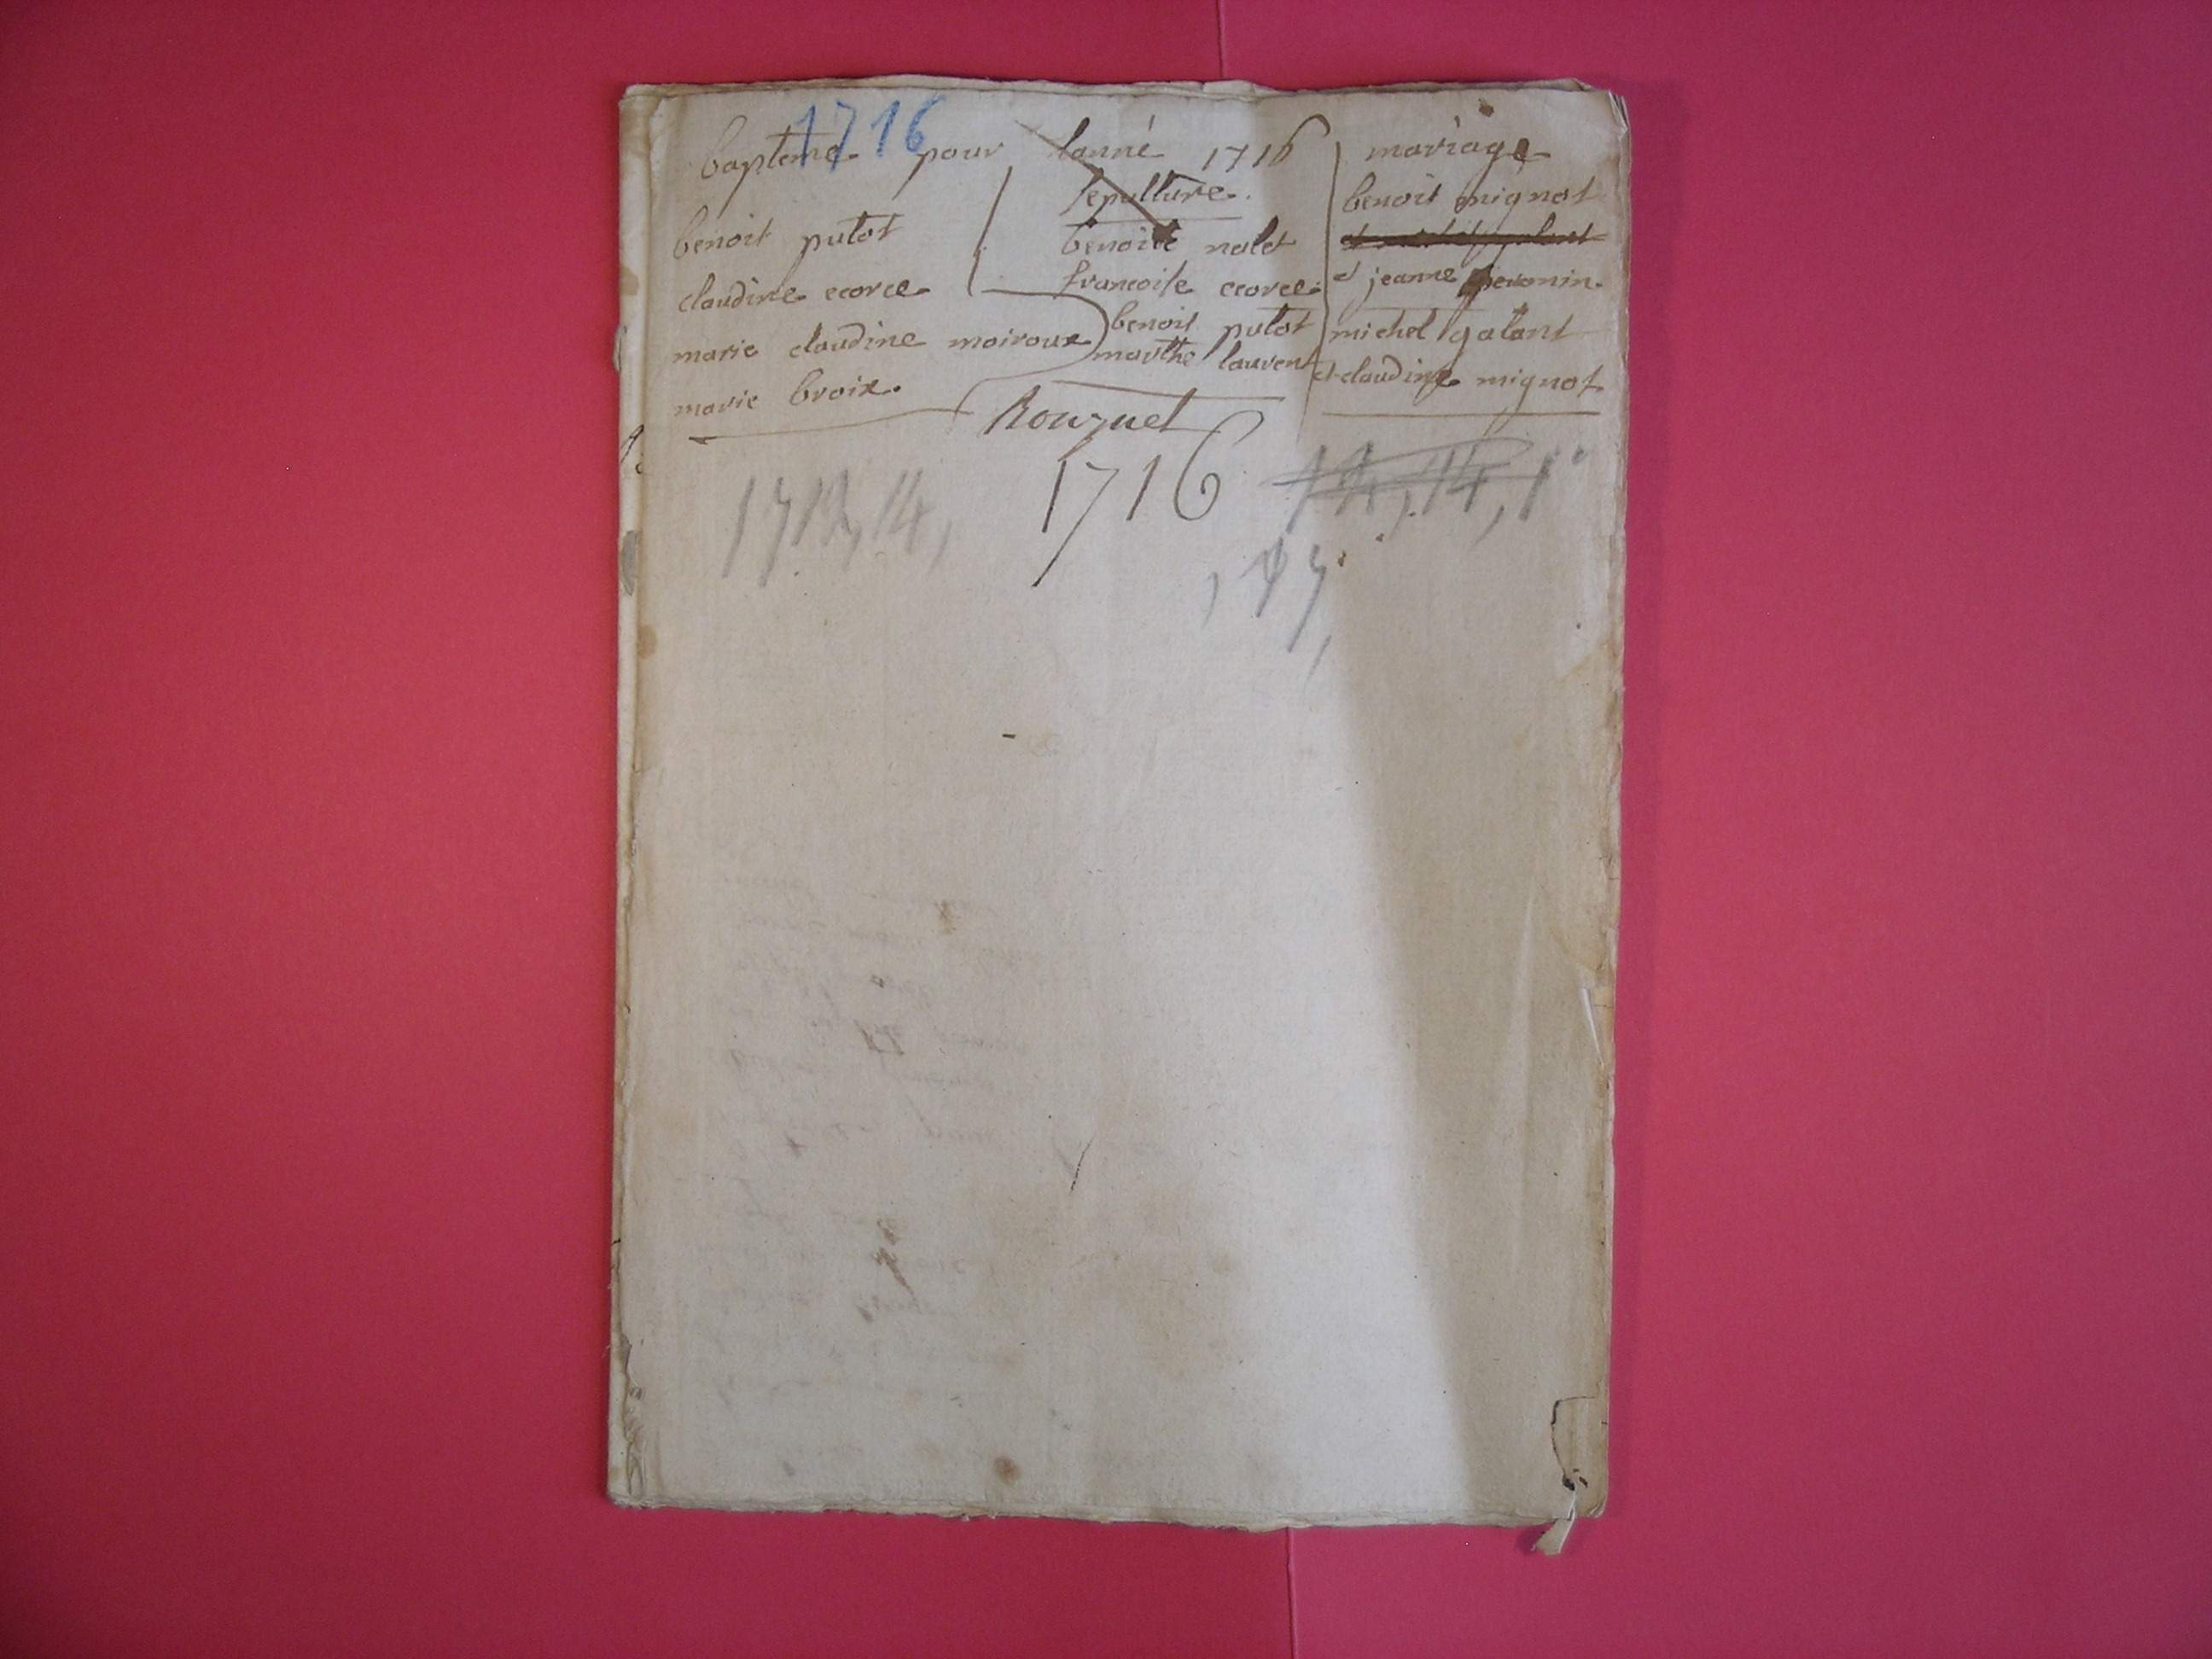 1716
bapteme pour lanné 1716
benoit putot
claudine ecorce
marie claudine moiroux
marie broix.
sepulture.
benoite nalet
francoise ecorce
benoit putot
marthe laurent
mariage
benoit mignot
et jeanne
michel galant
et claudine mignot
Rouzuet
1716
14,